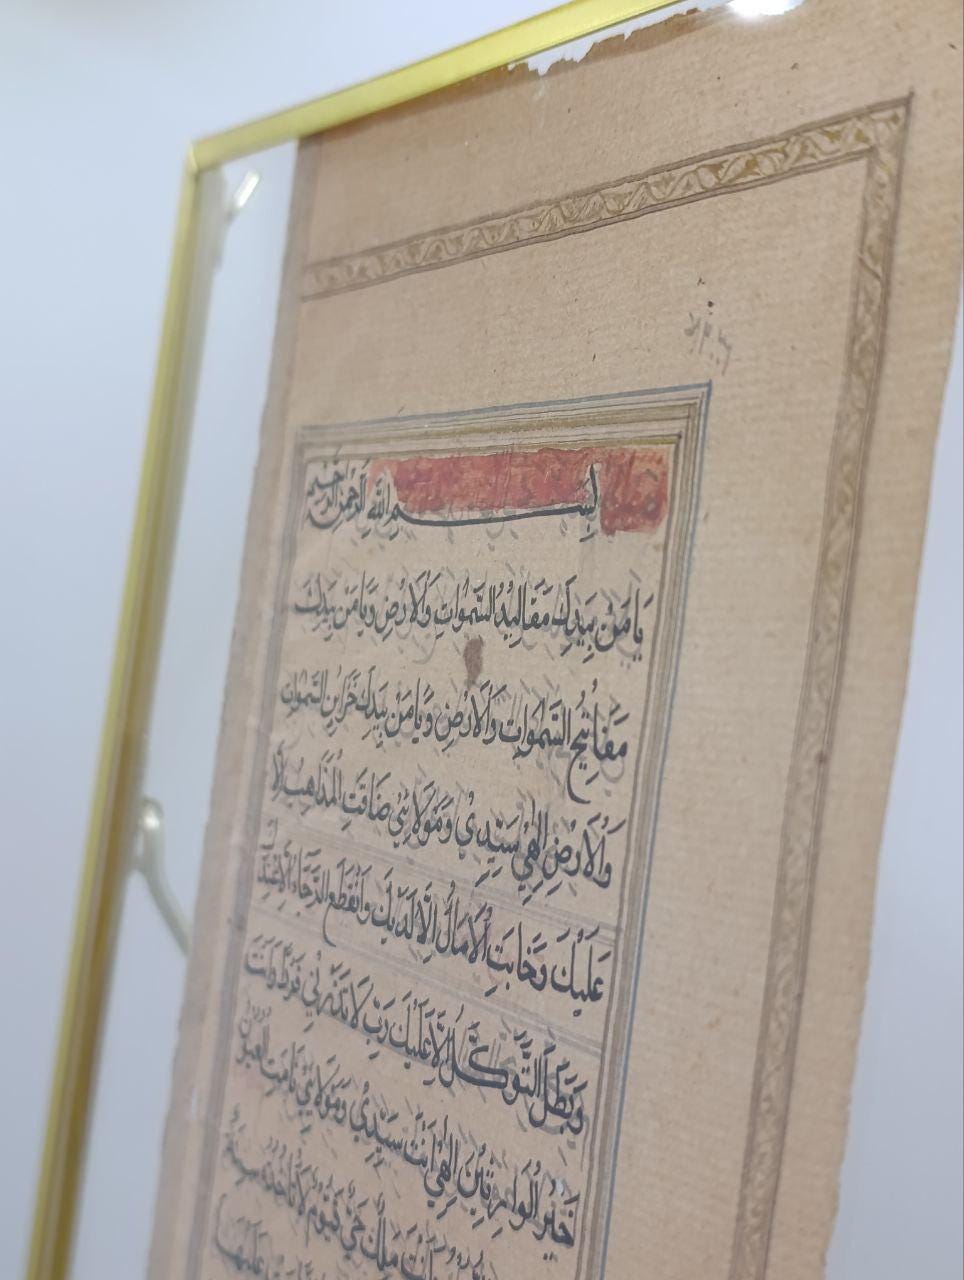 بسم الله الرحمن الرحيم
يَا مَنْ بِيَدِكَ مَقَالِيْدُ السَّمٰوَاتِ وَالْاَرْضِ وَيَا مَنْ بِيَدِكَ
مَفَاتِيْحُ السَّمٰوَاتِ وَالْاَرْضِ وَيَا مَنْ بِيَدِكَ خَزَايِنُ السَّمٰوَاتِ
وَالْاَرْضِ اِلٰهِيْ سَيِّدِيْ وَمَوْلَائِيْ ضَاقَتِ الْمَذَاهِبُ اِلَّا
عَلَيْكَ وَخَابَتِ الْاٰمَالُ اِلَّا لَدَيْكَ وَانْقَطَعَ الرَّجَاءُ اِلَّا عِنْدَكَ
وَبَطَلَ التَّوَكُّلُ اِلَّا عَلَيْكَ رَبِّ لَا تَذَرْنِيْ فَرْدًا وَاَنْتَ
خَيْرُ الْوَارِثِيْنَ اِلٰهِيْ اَنْتَ سَيِّدِيْ وَمَوْلَائِيْ نَامَتِ الْعُيُوْنُ
وَاَنْتَ مَلِكٌ حَيٌّ قَيُّوْمٌ لَا تَاْخُذُهُ سِنَةٌ
عَلَيْهَا